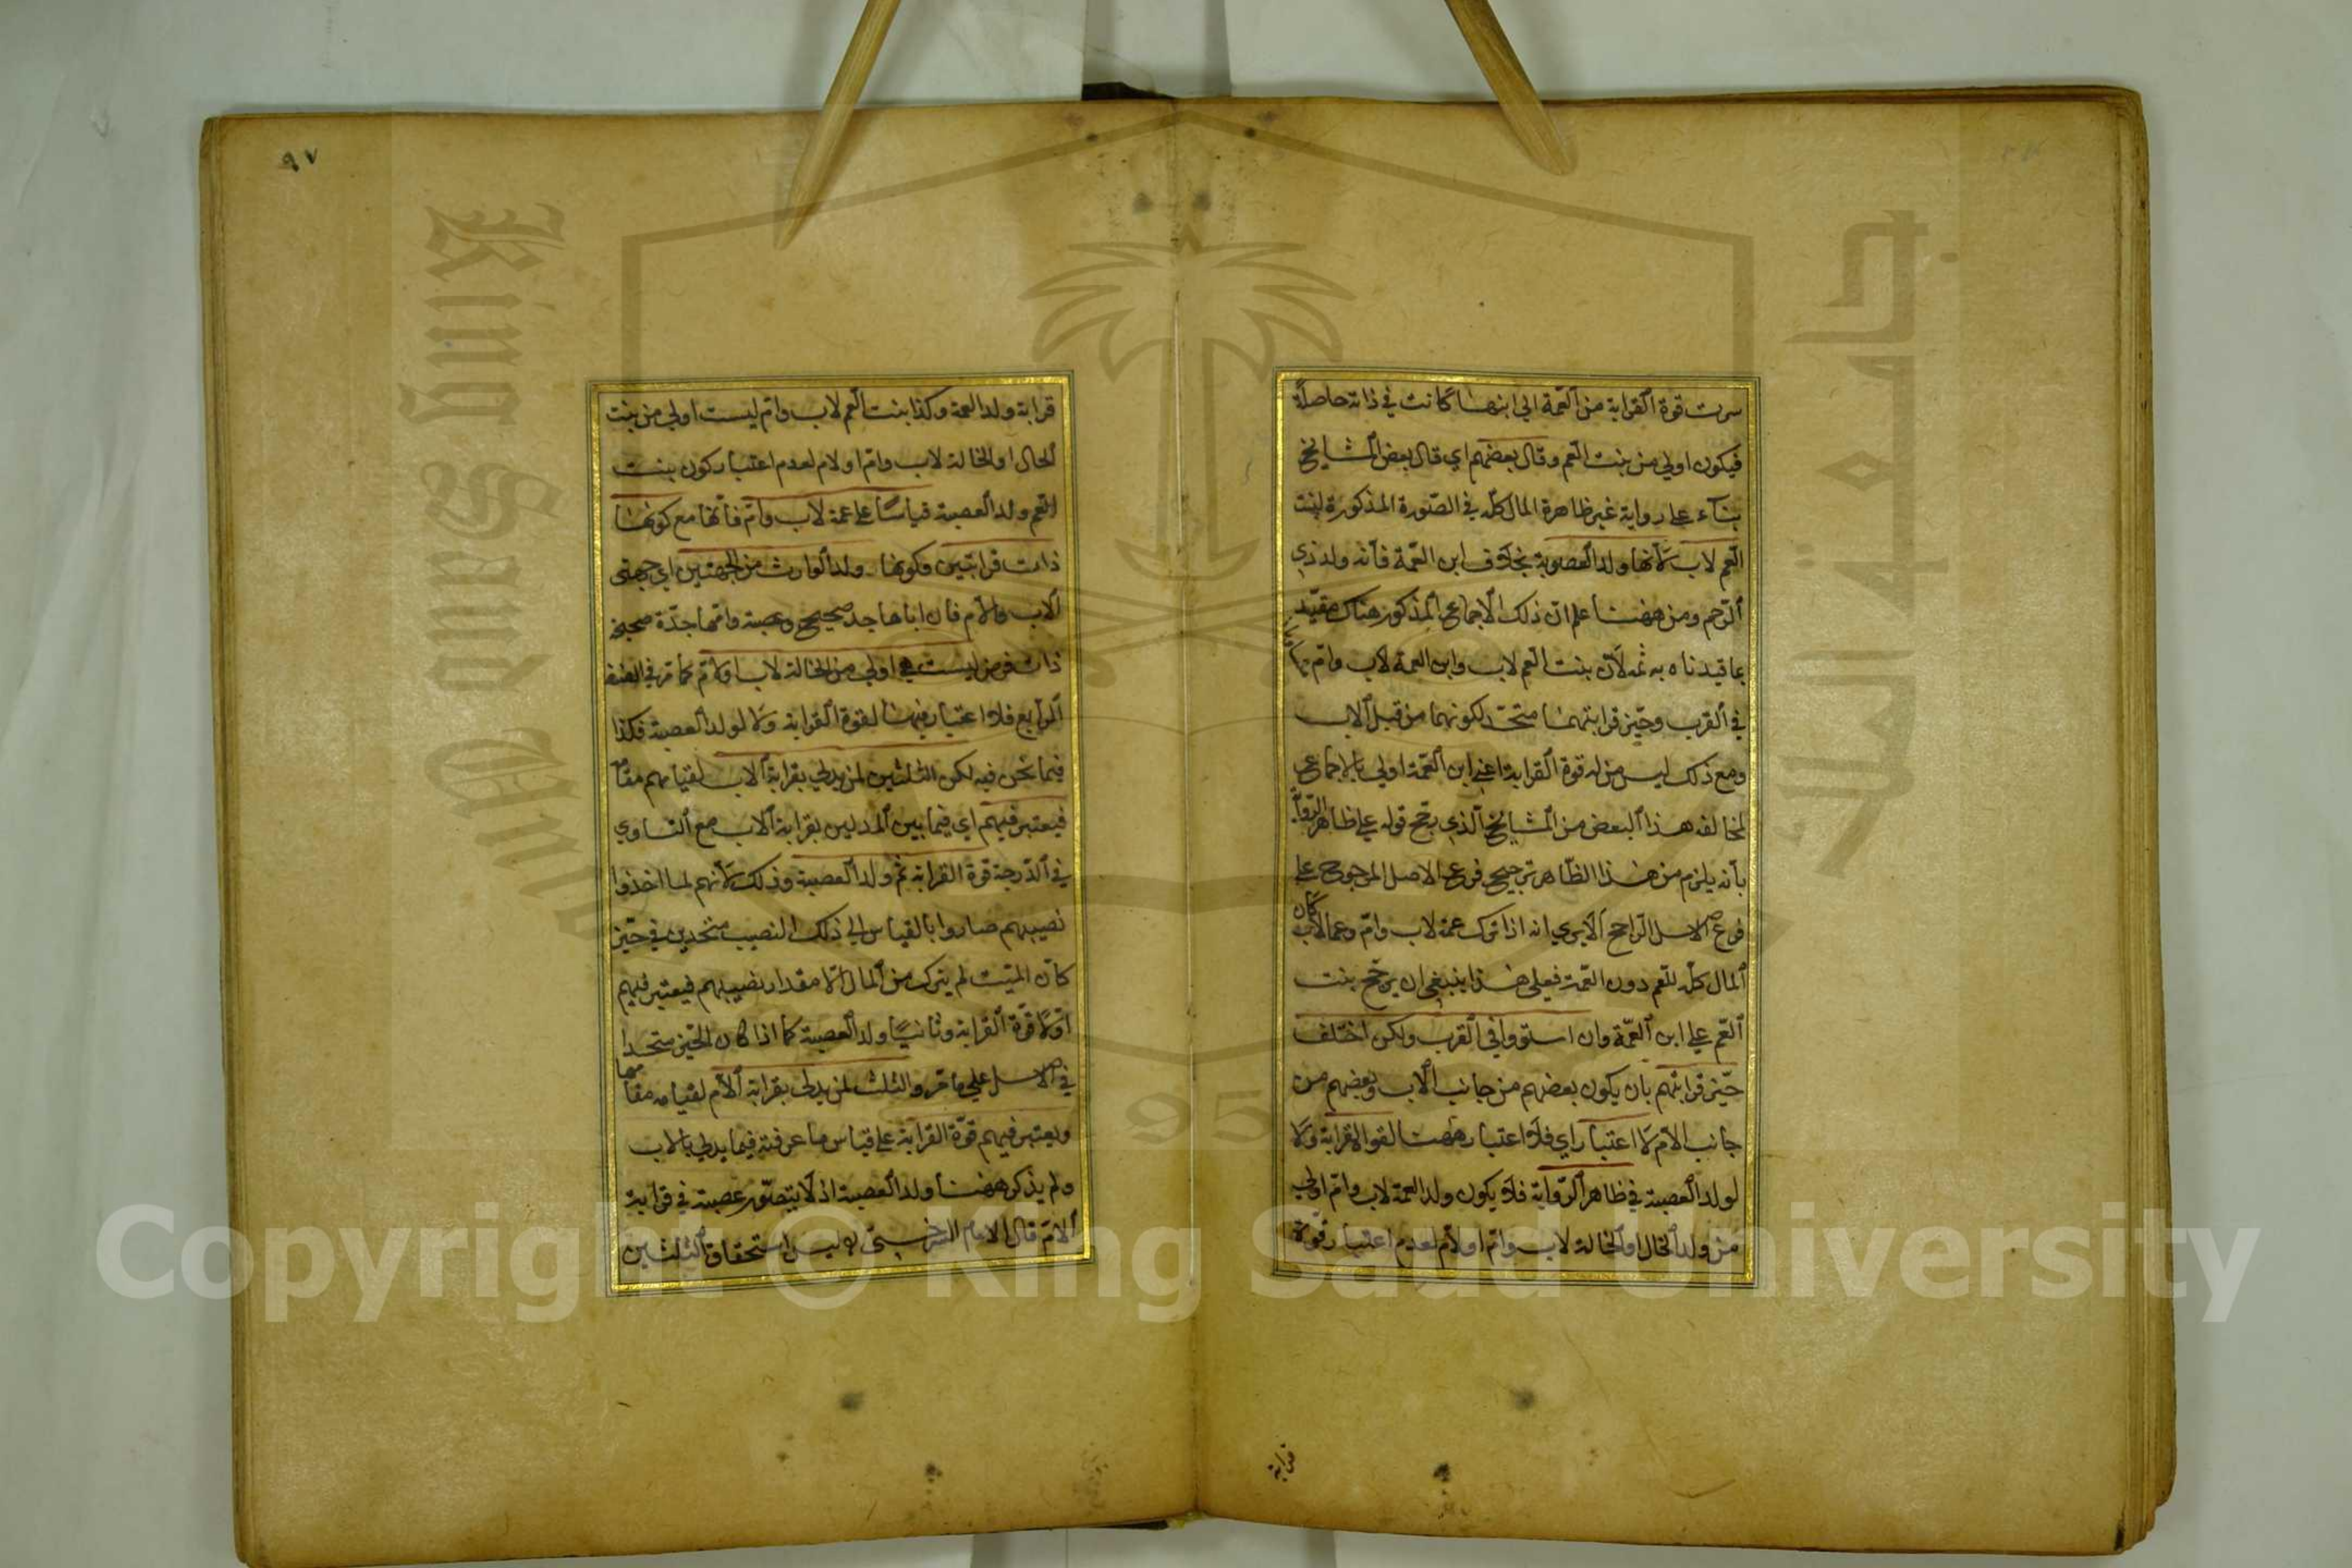 سرت قوة القرابة من العمة الى ابنها كانت في ذاته حاصلة
فيكون اولى من بنت العم وقال بعضهم اي قال بعض المشايخ
بناء على رواية غير ظاهرة المال كله في الصورة المذكورة لبنت
العم لاب لانها ولد العصوبة بخلاف ابن العمة فانه ولد ذي
الرحم ومن ههنا علم ان ذلك الاجماع المذكور هناك مقيد
بما قيدناه به ثمه لان بنت العم لاب وابن العمة لاب وام
في القرب وحيز قرابتهما متحد لكونهما من قبل الاب
ومع ذلك ليس من له قوة القرابة اعني ابن العمة اولى بالاجماع
لمخالفه هذا البعض من المشايخ الذي رجح قوله على ظاهر الرواية
بانه يلزم من هذا الظاهر ترجيح فرع الاصل المرجوح على
فرع الاصل الراجح الا يرى انه اذا ترك عمة لاب وام وعما لاب كان
المال كله للعم دون العمة فعلى هذا ينبغي ان يرجح بنت
العم على ابن العمة وان استووا في القرب ولكن اختلف
حيز قرابتهم بان يكون بعضهم من جانب الاب وبعضهم من
جانب الام لا اعتبار اي فلا اعتبار ههنا لقوة القرابة ولا
لولد العصبة في ظاهر الرواية فلا يكون ولد العمة لاب وام اولى
من ولد الخال او الخالة لاب وام او لام لعدم اعتبار قوة
قرابة
٩٧
قرابة ولد العمة وكذا بنت العم لاب وام ليست اولى من بنت
الخال او الخالة لاب وام او لام لعدم اعتبار كون بنت
العم ولد العصبة قياسا على عمة لاب وام فانها مع كونها
ذات قرابتين وكونها ولد الوارث من الجهتين اي جهتي
الاب والام فان اباها جد صحيح وعصبة وامها جدة صحيحة
ذات فرض ليست هي اولى من الخالة لاب او لام كما مر في الصنف
الرابع فلا اعتبار فيهما لقوة القرابة ولا لولد العصبة فكذا
فيما نحن فيه لكن الثلثين لمن يدلي بقرابة الاب لقيامهم مقامه
فيعتبر فيهم اي فيما بين المدلين بقرابة الاب مع التساوي
في الدرجة قوة القرابة ثم ولد العصبة وذلك لانهم لما اخذوا
نصيبهم صاروا بالقياس الى ذلك النصيب متحدين في حيز
كان الميت لم يترك من المال الا مقدار نصيبهم فيعتبر فيهم
اولا قوة القرابة وثانيا ولد العصبة كما اذا كان الحيز متحدا
في الاصل على ما مر والثلث لمن يدلي بقرابة الام لقيامه مقامها
ويعتبر فيهم قوة القرابة على قياس ما عرفته فيما يدلي بالاب
ولم يذكر ههنا ولد العصبة اذ لا يتصور عصبة في قرابة
الام قال الامام السرخسي وليس استحقاق الثلثين
King Saud University
جامعة الملك سعود
Copyright © King Saud University